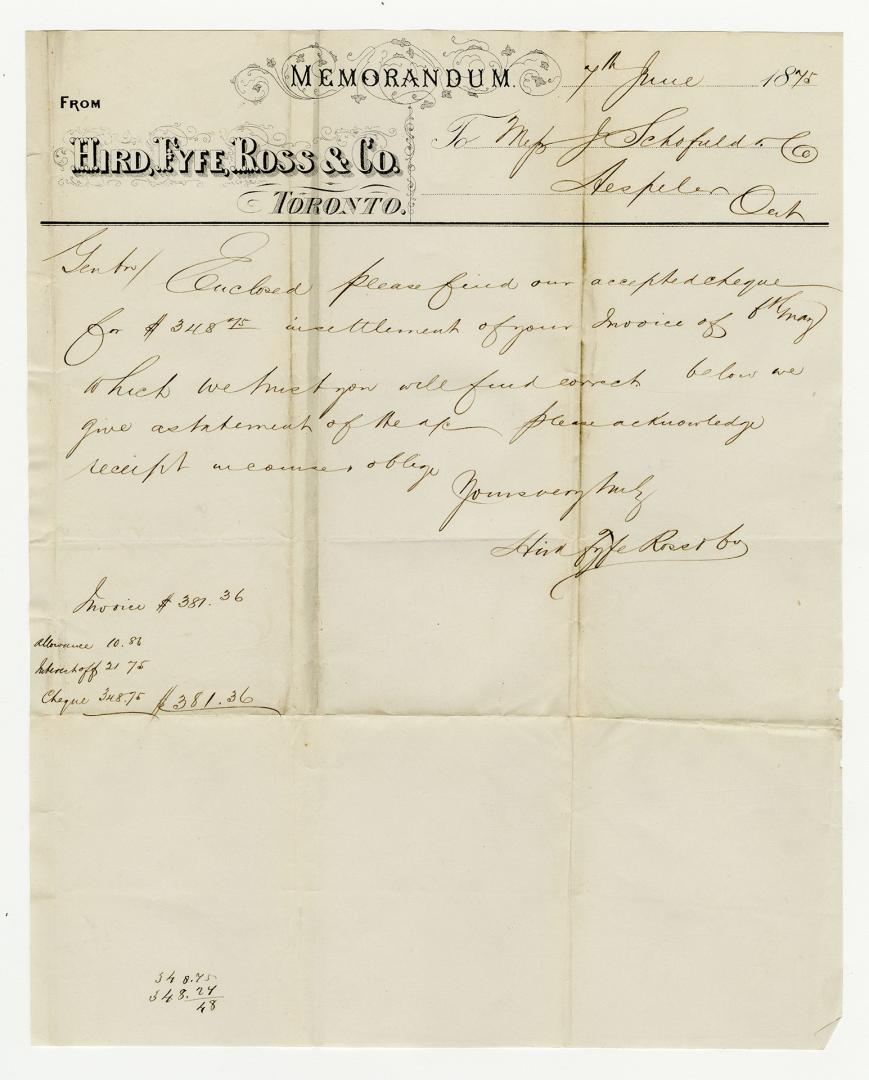 MEMORANDUM.
7th June 1875
FROM
HIRD, FYFE, ROSS & CO.
TORONTO.
To Messrs J Schofield & Co
Hespeler
Ont
Gentn/ Enclosed please find our accepted cheque
for $348.75 in settlement of your Invoice of 6th May
which we trust you will find correct below we
give a statement of the a/c please acknowledge
receipt in course & oblige
Yours very truly
Hird Fyfe Ross & Co
Invoice $381.36
Allowance 10.86
Interest off 21 75
Cheque 348.75 $381.36
348.75
348.27
48